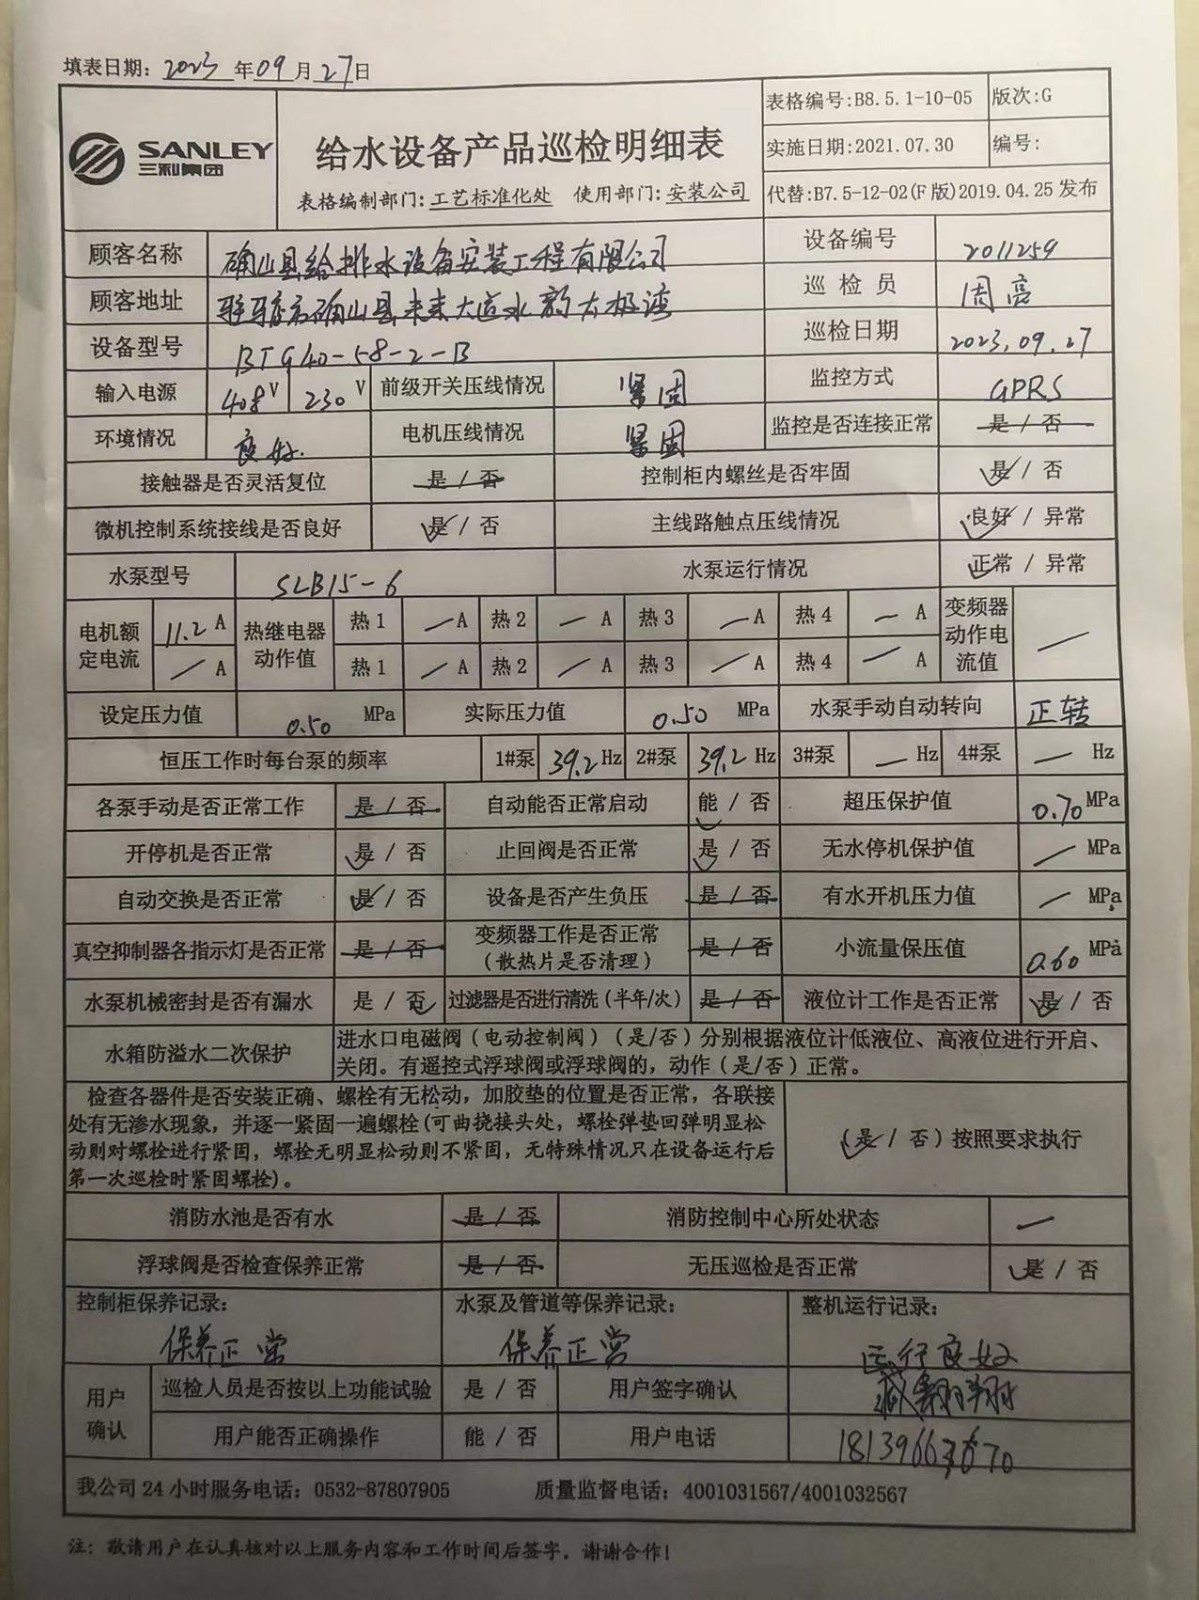 填表日期: 2023 年 09 月 27 日
SANLEY
三利集团
给水设备产品巡检明细表
表格编制部门: 工艺标准化处 使用部门: 安装公司
表格编号:B8.5.1-10-05 版次:G
实施日期:2021.07.30 编号:
代替:B7.5-12-02(F版)2019.04.25 发布
顾客名称 确山县给排水设备安装工程有限公司 设备编号 2011259
顾客地址 驻马店市确山县未来大道水韵太极湾 巡检员 周亮
设备型号 BTG40-58-2-B 巡检日期 2023.09.27
输入电源 408V 230V 前级开关压线情况 紧固 监控方式 GPRS
环境情况 良好. 电机压线情况 紧固 监控是否连接正常 是 / 否
接触器是否灵活复位 是 / 否 控制柜内螺丝是否牢固 是 / 否
微机控制系统接线是否良好 是 / 否 主线路触点压线情况 良好 / 异常
水泵型号 SLB15-6 水泵运行情况 正常 / 异常
电机额定电流 11.2 A 热继电器动作值 热1 — A 热2 — A 热3 — A 热4 — A 变频器动作电流值 —
— A 热1 — A 热2 — A 热3 — A 热4 — A
设定压力值 0.50 MPa 实际压力值 0.50 MPa 水泵手动自动转向 正转
恒压工作时每台泵的频率 1#泵 39.2 Hz 2#泵 39.2 Hz 3#泵 — Hz 4#泵 — Hz
各泵手动是否正常工作 是 / 否 自动能否正常启动 能 / 否 超压保护值 0.70 MPa
开停机是否正常 是 / 否 止回阀是否正常 是 / 否 无水停机保护值 — MPa
自动交换是否正常 是 / 否 设备是否产生负压 是 / 否 有水开机压力值 — MPa
真空抑制器各指示灯是否正常 是 / 否 变频器工作是否正常 是 / 否 小流量保压值 0.60 MPa
(散热片是否清理)
水泵机械密封是否有漏水 是 / 否 过滤器是否进行清洗(半年/次) 是 / 否 液位计工作是否正常 是 / 否
水箱防溢水二次保护 进水口电磁阀(电动控制阀)(是/否)分别根据液位计低液位、高液位进行开启、
关闭。有遥控式浮球阀或浮球阀的,动作(是/否)正常。
检查各器件是否安装正确、螺栓有无松动,加胶垫的位置是否正常,各联接
处有无渗水现象,并逐一紧固一遍螺栓(可曲挠接头处,螺栓弹垫回弹明显松
动则对螺栓进行紧固,螺栓无明显松动则不紧固,无特殊情况只在设备运行后
第一次巡检时紧固螺栓)。
(是 / 否)按照要求执行
消防水池是否有水 是 / 否 消防控制中心所处状态 —
浮球阀是否检查保养正常 是 / 否 无压巡检是否正常 是 / 否
控制柜保养记录: 水泵及管道等保养记录: 整机运行记录:
保养正常 保养正常 运行良好
用户确认 巡检人员是否按以上功能试验 是 / 否 用户签字确认
用户能否正确操作 能 / 否 用户电话
我公司24小时服务电话: 0532-87807905 质量监督电话: 4001031567/4001032567
注: 敬请用户在认真核对以上服务内容和工作时间后签字。谢谢合作!